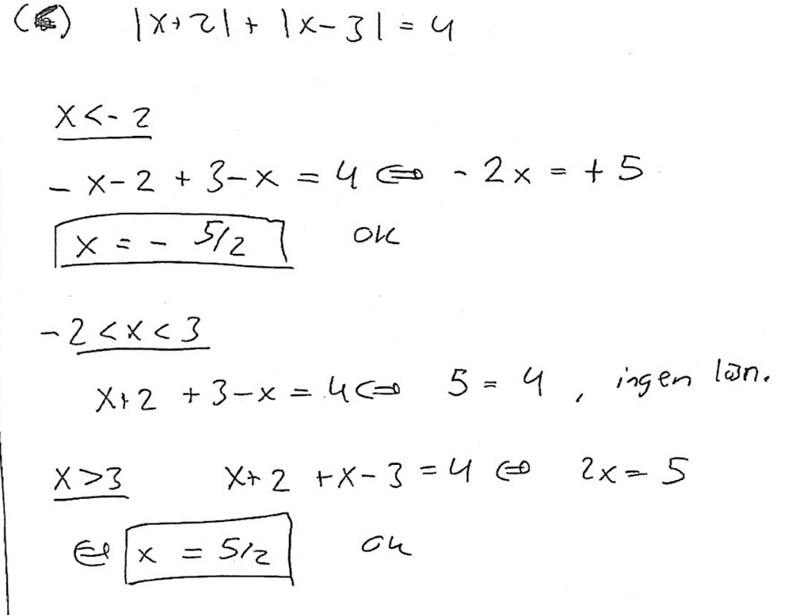 |x+2| + |x-3| = 4
x < -2
-x-2 + 3-x = 4 ⇔ -2x = +5
x = - 5/2 ok
-2 < x < 3
x+2 + 3-x = 4 ⇔ 5 = 4, ingen løsn.
x > 3 x+2 + x-3 = 4 ⇔ 2x = 5
⇔ x = 5/2 ok